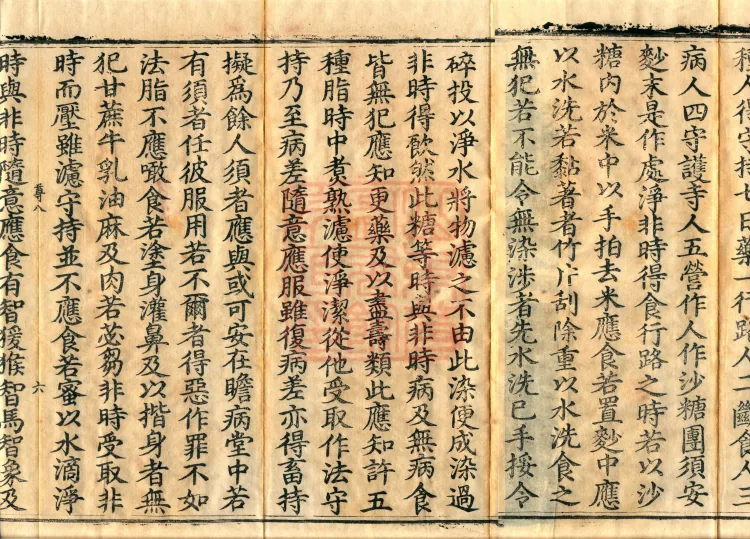 種人得守持七日藥一行路人二斷食人三
病人四守護寺人五營作人作沙糖團須安
麨末是作處淨非時得食行路之時若以沙
糖內於米中以手拍去米應食若置麨中應
以水洗若黏著者竹片刮除重以水洗食之
無犯若不能令無染涉者先水洗已手挼令
碎投以淨水將物濾之不由此染便成染過
非時得飲然此糖等時與非時病及無病食
皆無犯應知更藥及以盡壽類此應知許五
種脂時中煑熟濾使淨潔從他受取作法守
持乃至病差隨意應服雖復病差亦得畜持
擬爲餘人須者應與或可安在瞻病堂中若
有須者任彼服用若不爾者得惡作罪不如
法脂不應噉食若塗身灌鼻及以揩身者無
犯甘蔗牛乳油麻及肉若苾芻非時受取非
時而壓雖濾守持並不應食若蜜以水滴淨
尊八 六
時與非時隨意應食有智猨猴智馬智象及